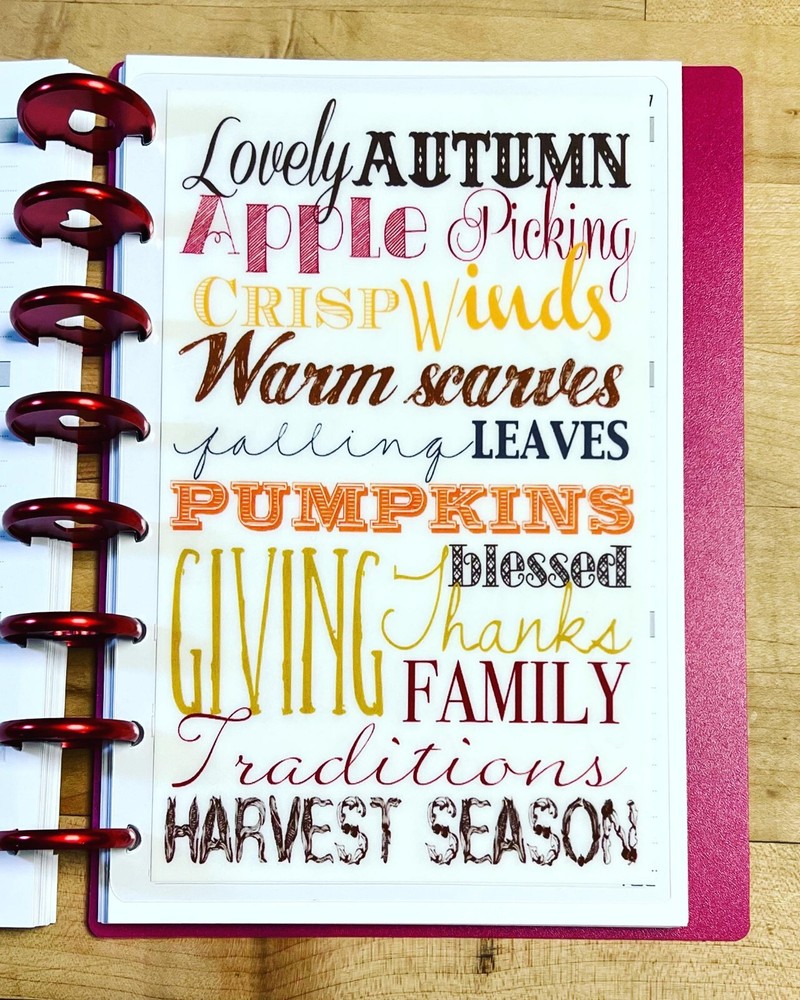 Lovely AUTUMN
Apple Picking
CRISP Winds
Warm scarves
falling LEAVES
PUMPKINS
blessed
GIVING Thanks
FAMILY
Traditions
HARVEST SEASON